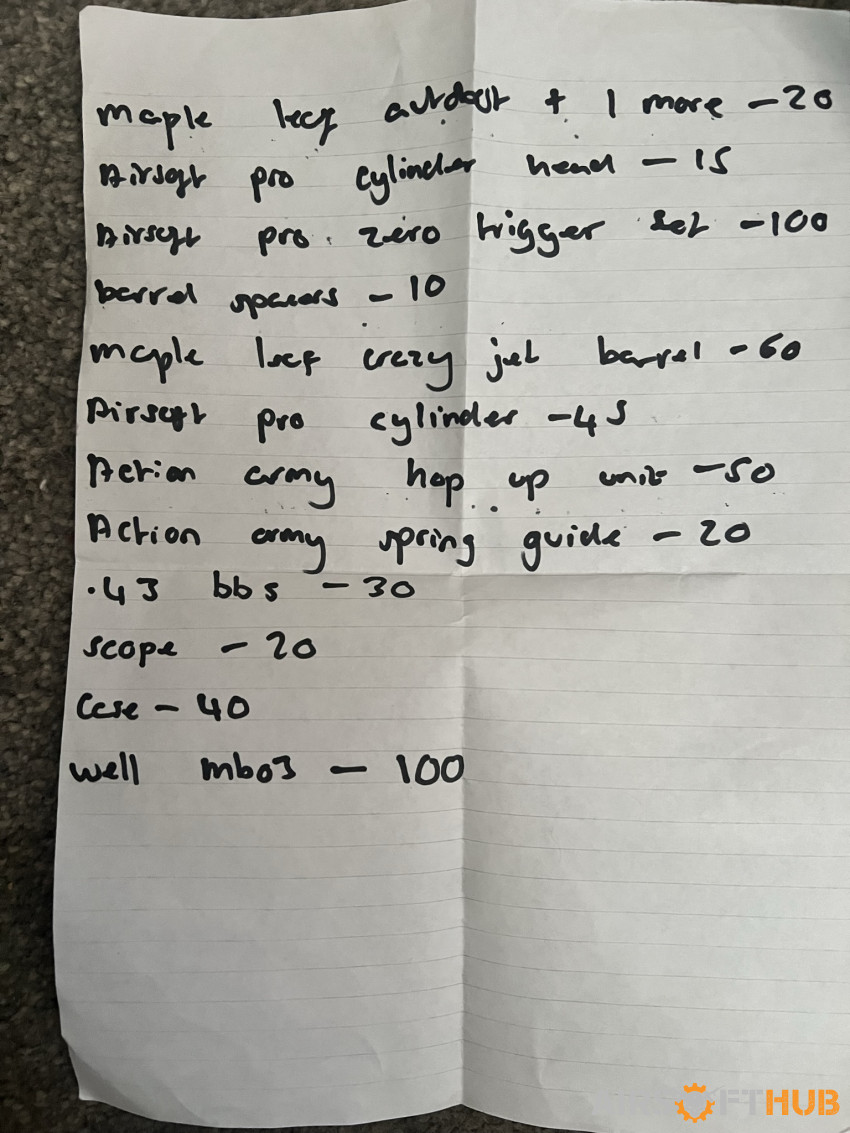 maple leaf autobot + 1 more - 20
Airsoft pro cylinder head - 15
Airsoft pro zero trigger set - 100
barrel spacers - 10
maple leaf crazy jet barrel - 60
Airsoft pro cylinder - 45
Action army hop up unit - 50
Action army spring guide - 20
.43 bbs - 30
scope - 20
Case - 40
well mb03 - 100
FTHUB